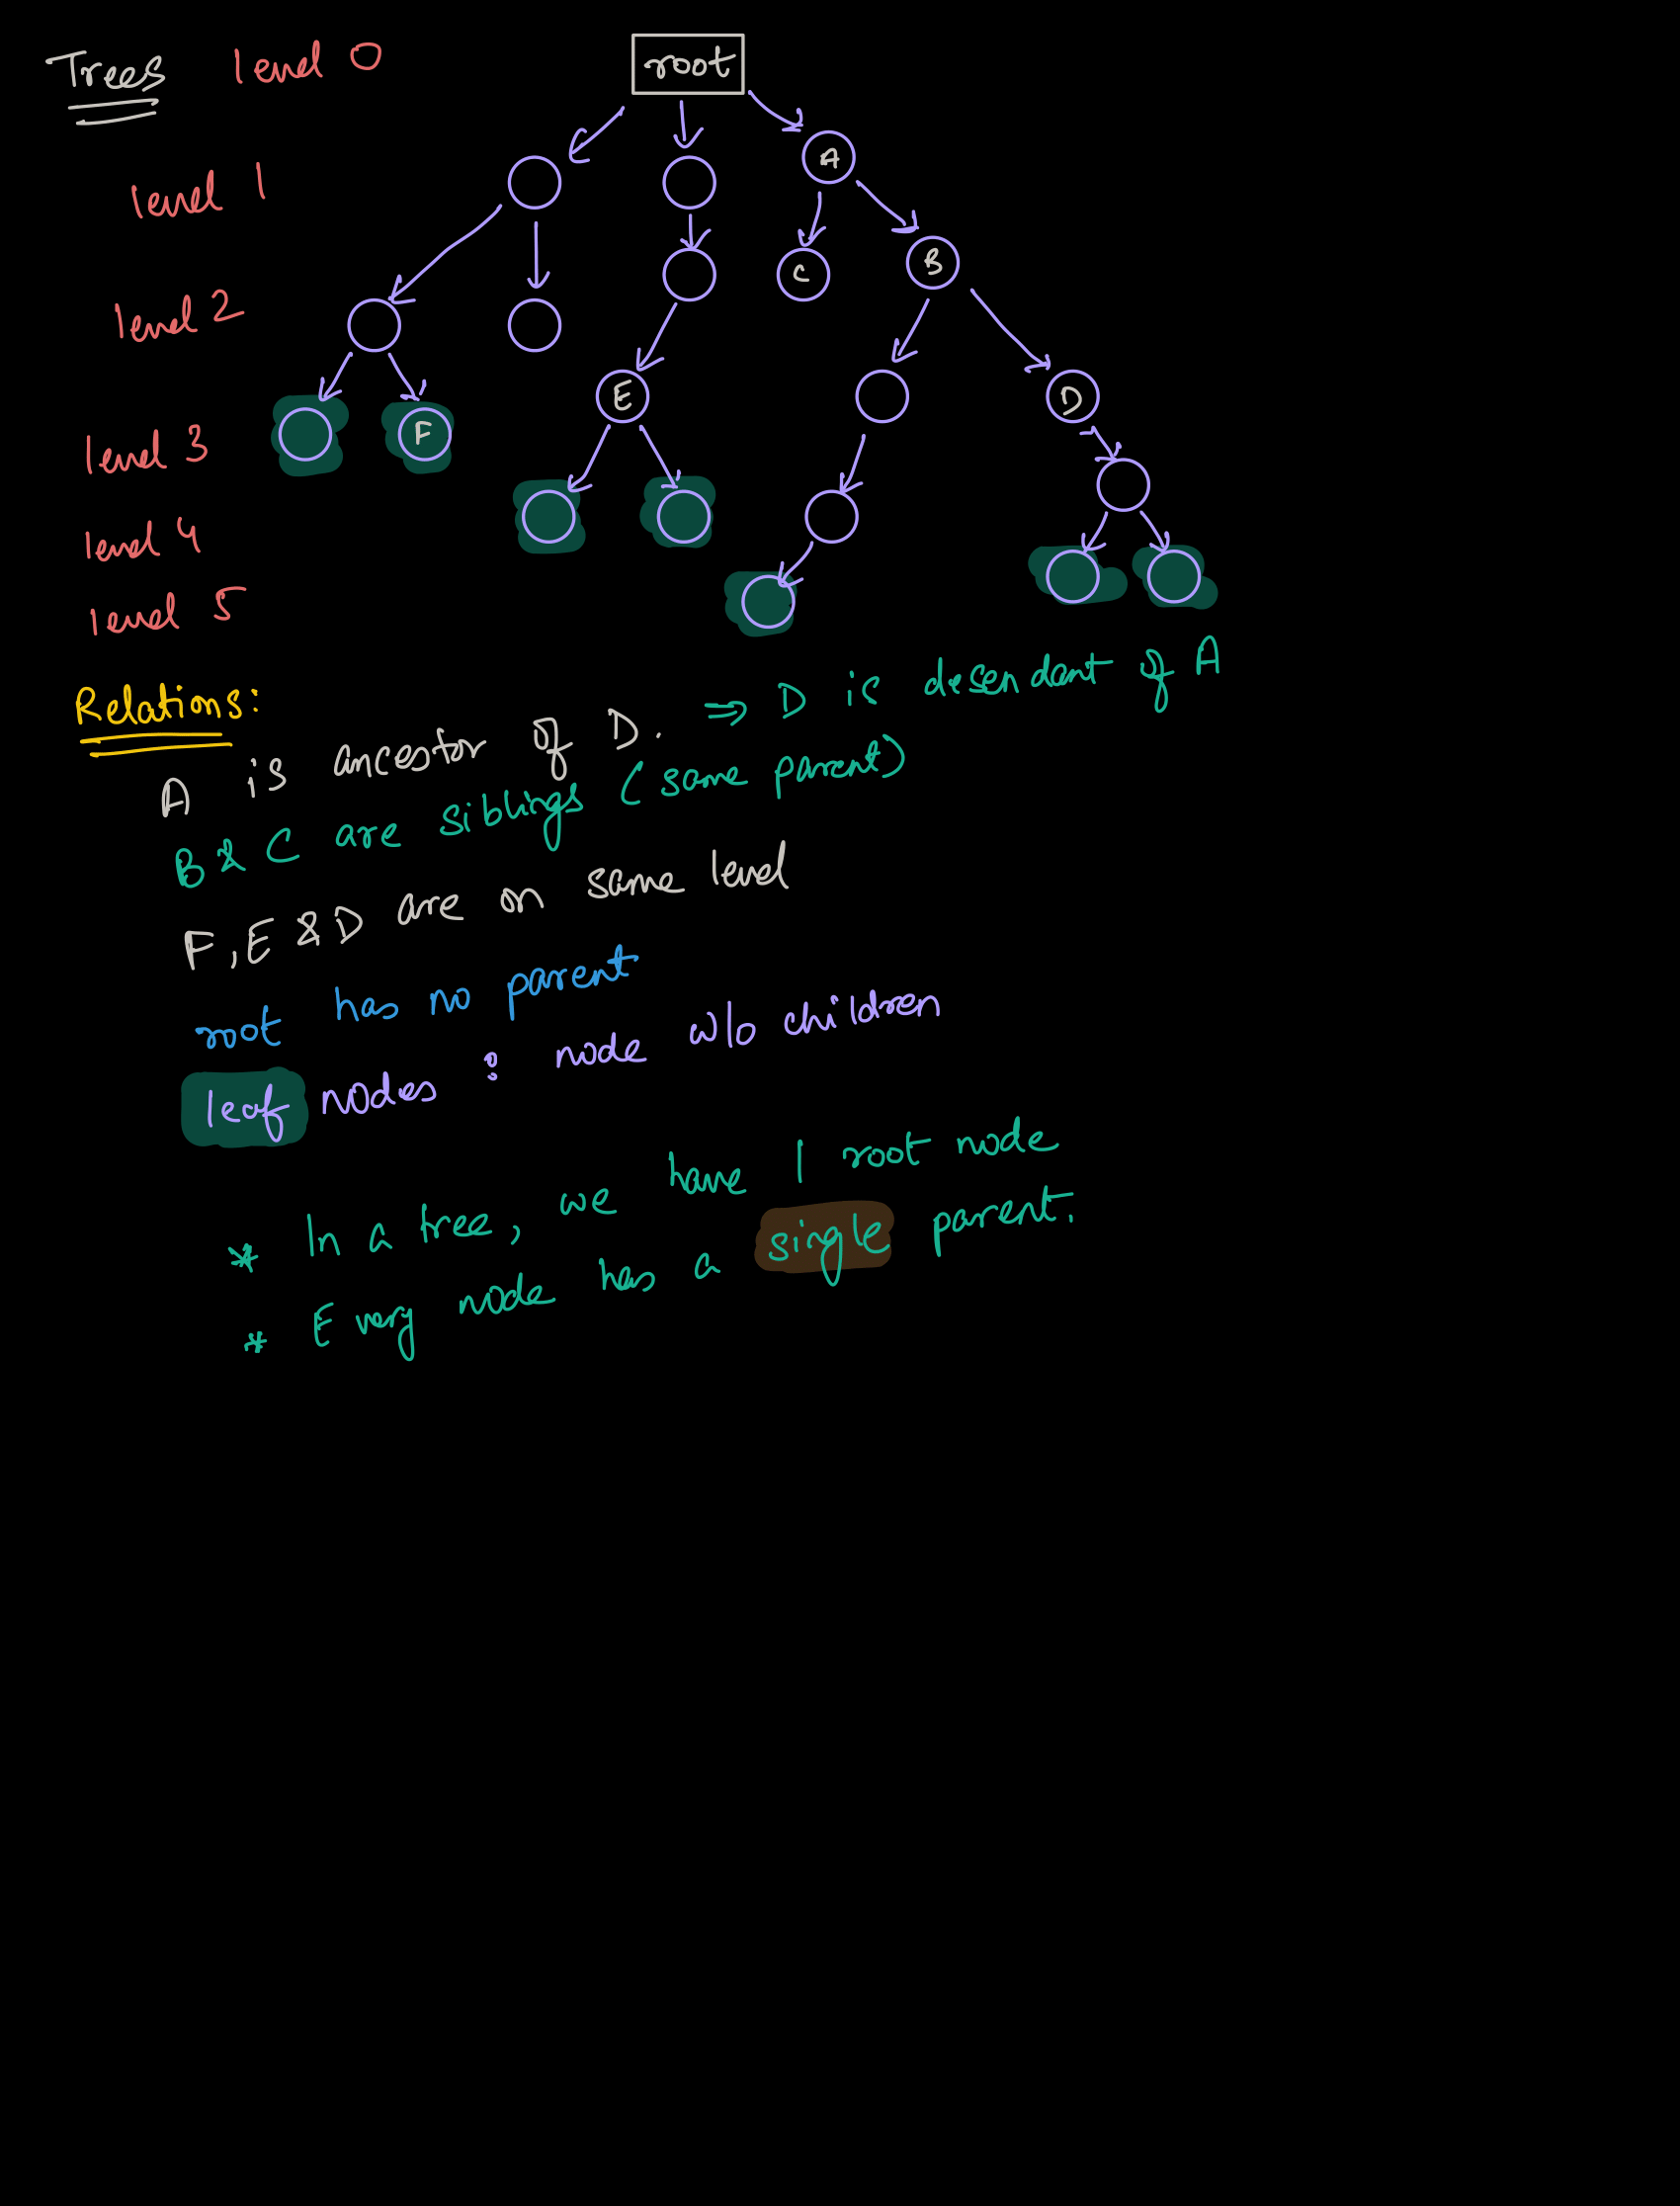 Trees level 0
root
level 1
A
C B
level 2
E D
level 3 F
level 4
level 5
Relations:
A is ancestor of D. ⇒ D is desendant of A
B & C are siblings (same parent)
F, E & D are on same level
root has no parent
leaf nodes : node w/o children
* In a tree, we have 1 root node
* Every node has a single parent.